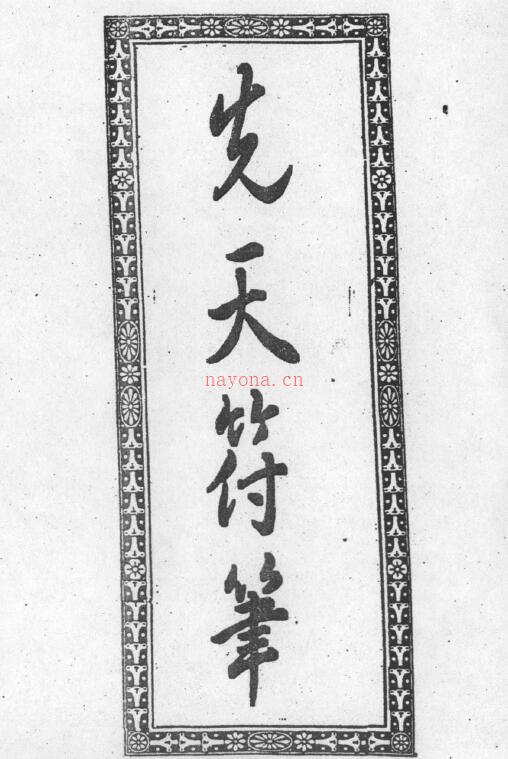 先天符筆
nayona.cn